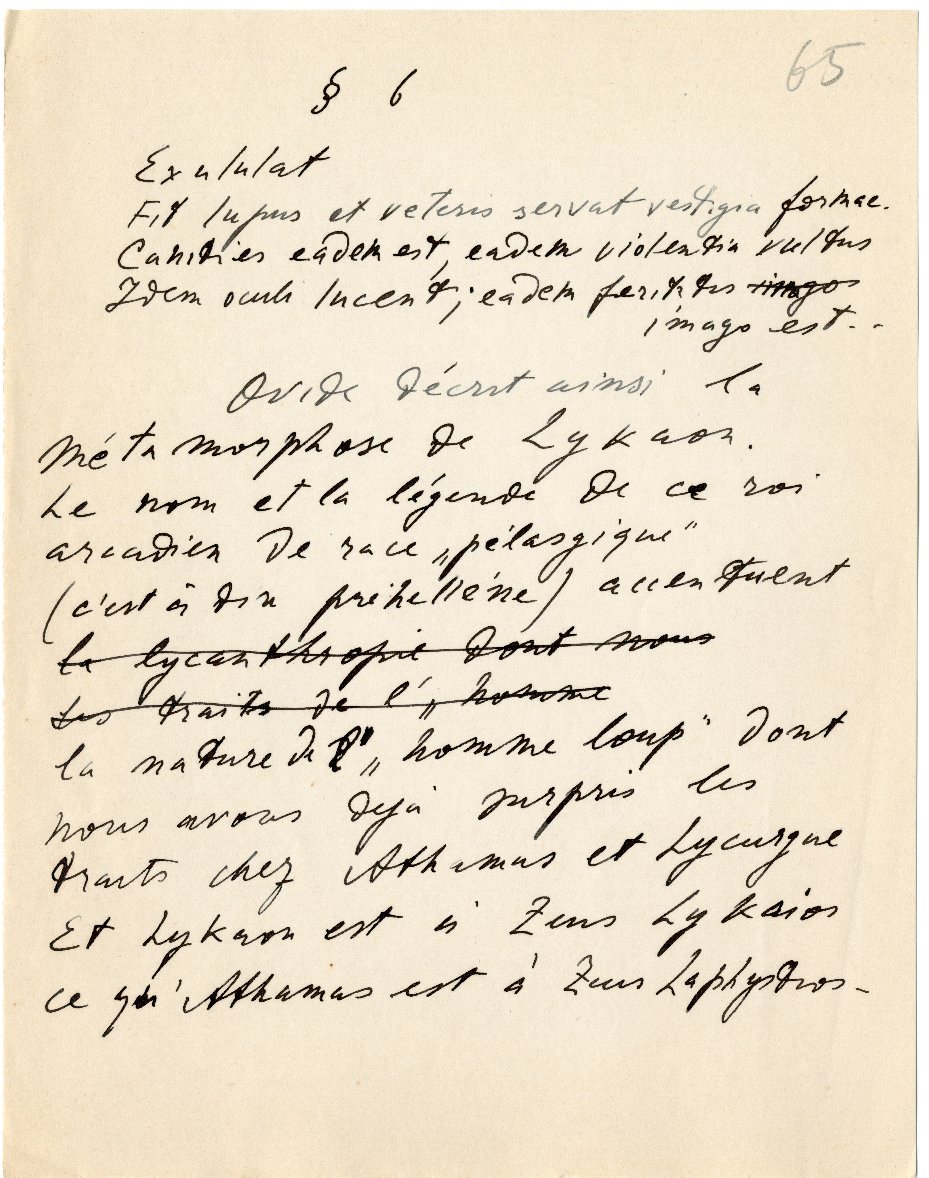 65
§ 6
Exululat
Fit lupus et veteris servat vestigia formae.
Canities eadem est, eadem violentia vultus
Idem oculi lucent; eadem feritatis imago
imago est..
Ovide décrit ainsi la
métamorphose de Lykaon.
Le nom et la légende de ce roi
arcadien de race „pélasgique"
(c'est à dire préhellène) accentuent
la lycanthropie dont nous
les traits de l'„homme
la nature de l'„homme loup" dont
nous avons déjà surpris les
traits chez Athamas et Lycurgue
Et Lykaon est à Zeus Lykaios
ce qu'Athamas est à Zeus Laphystios-